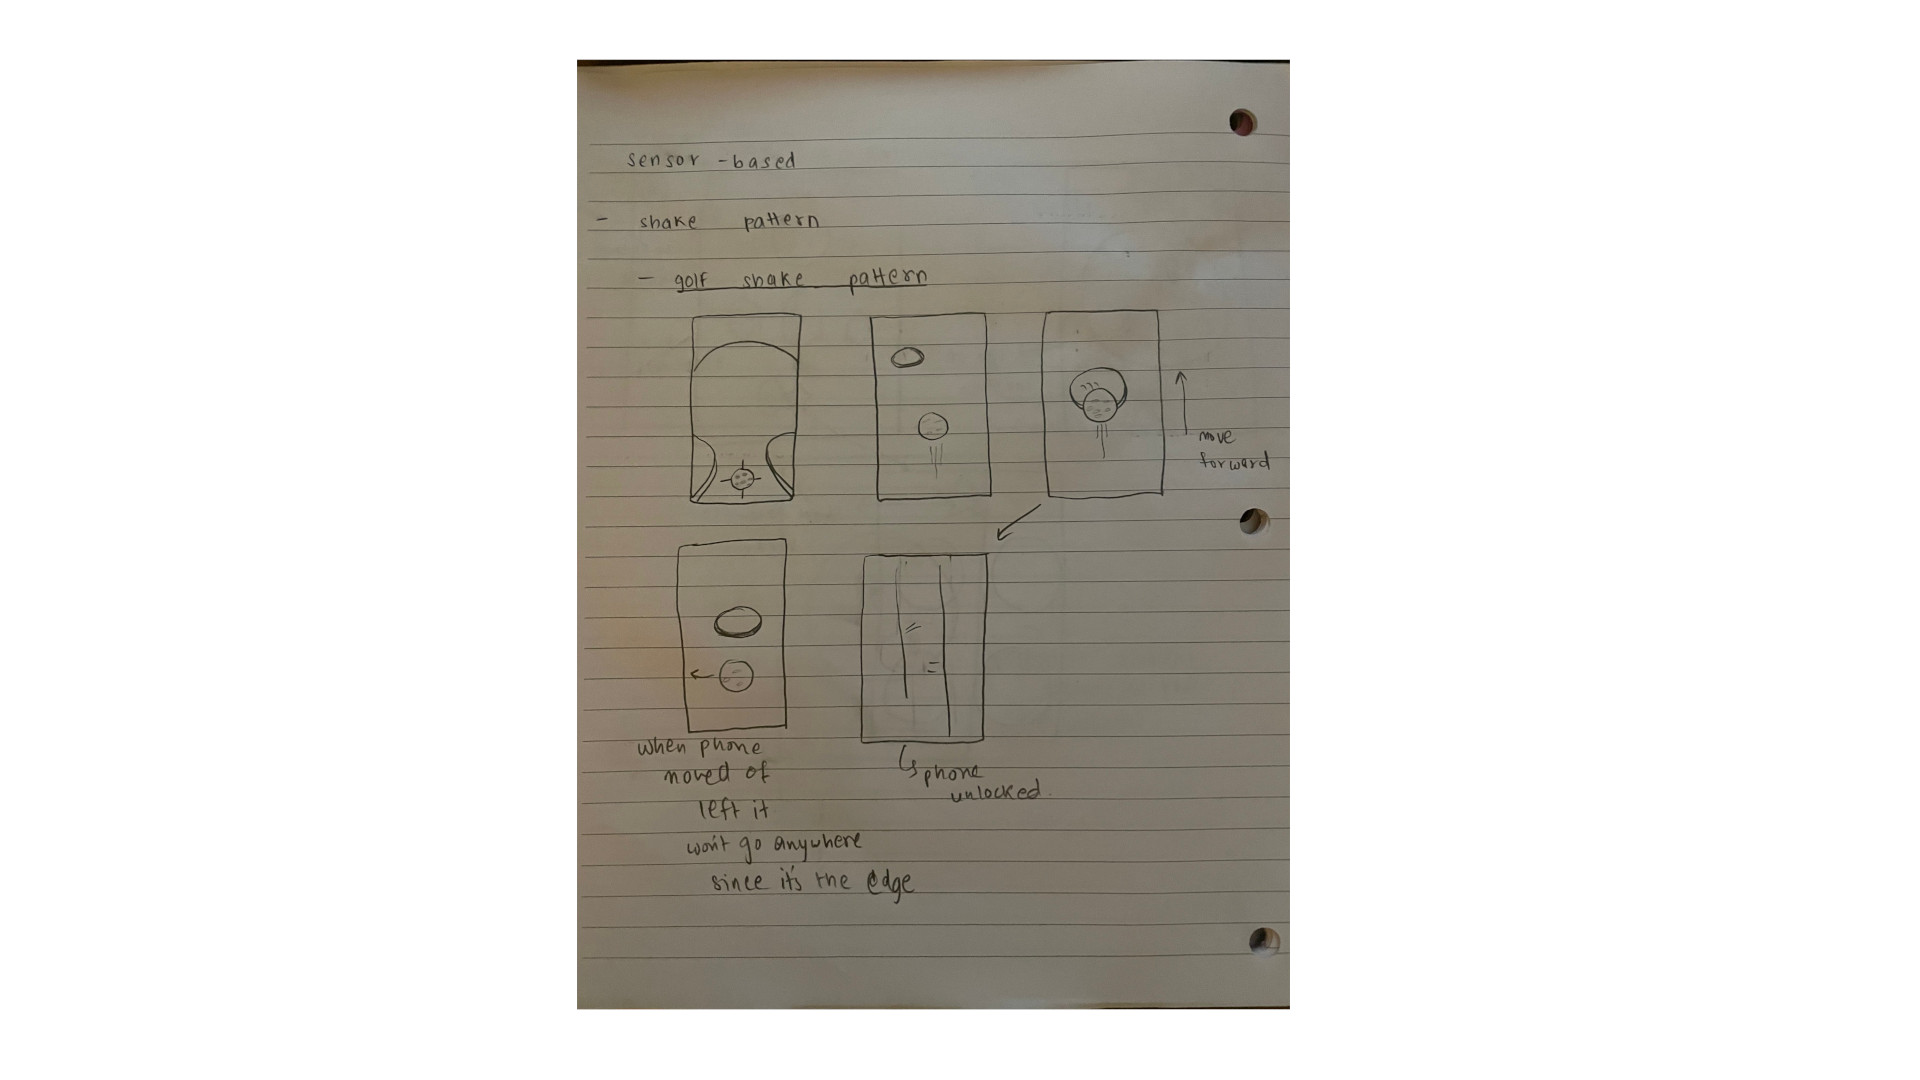 sensor - based
- shake pattern
- golf shake pattern
move
forward
when phone
moved of
left it
won't go anywhere
since it's the edge
phone
unlocked.